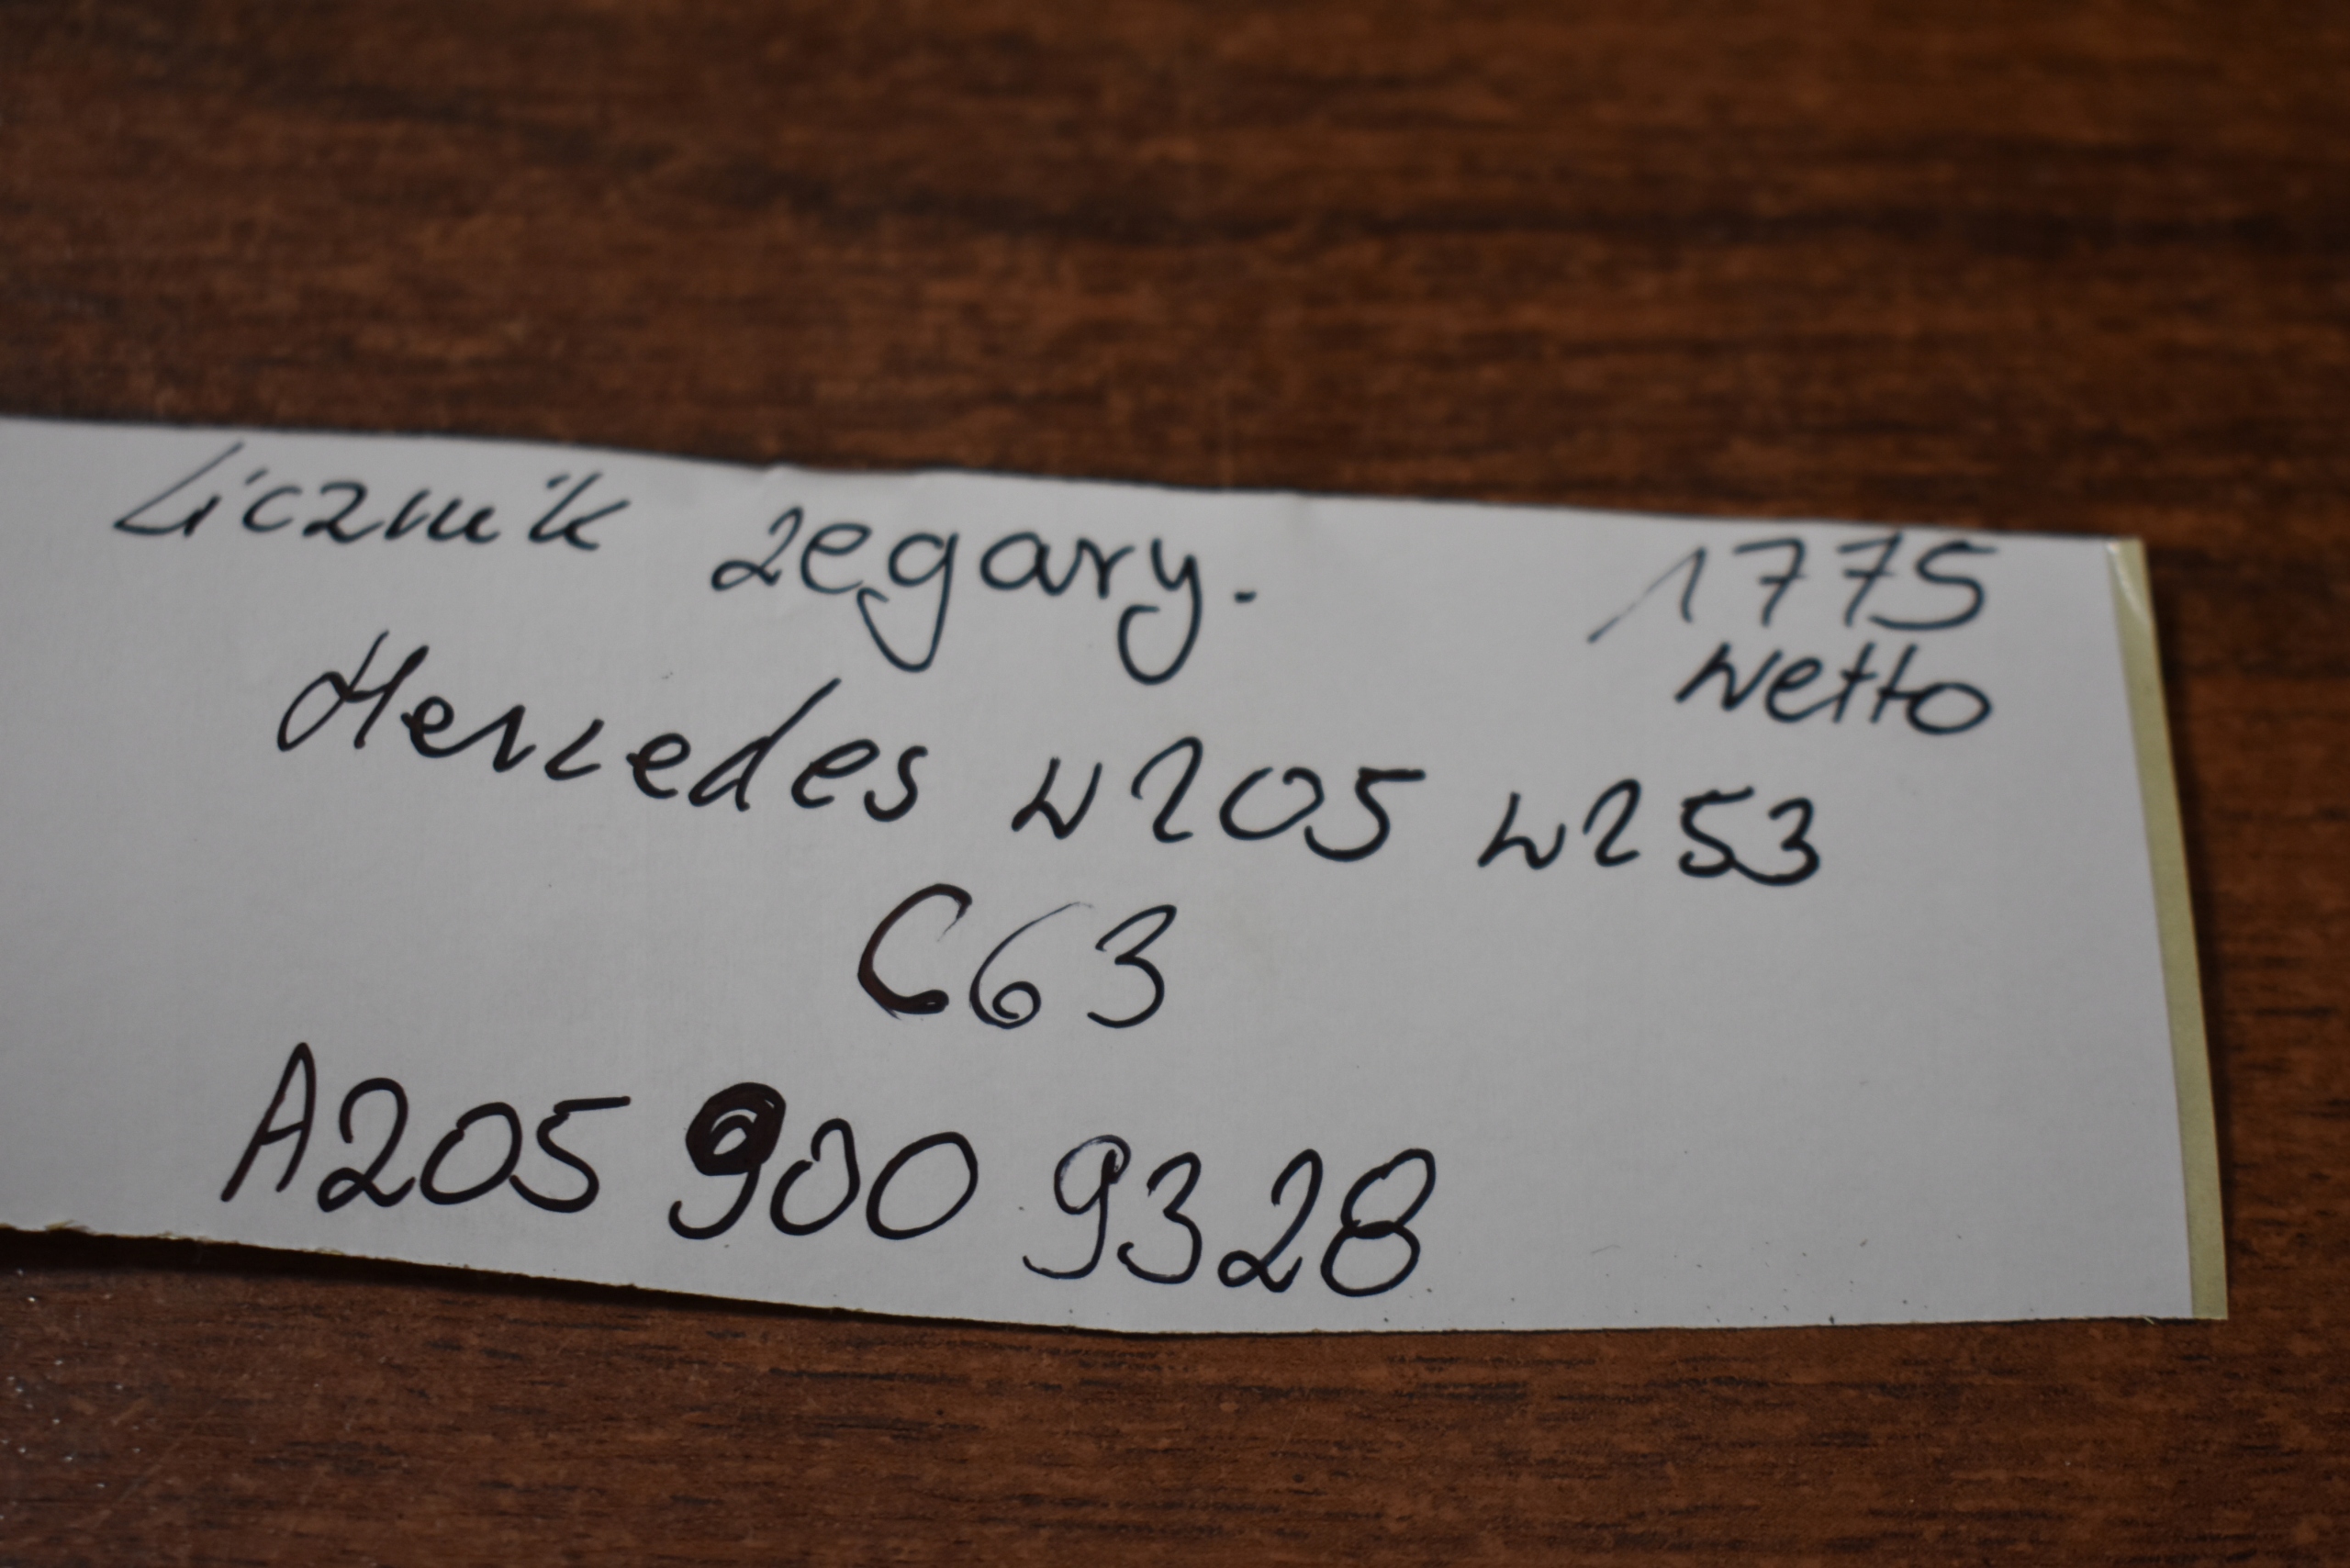 Licznik zegary.
1775
netto
Mercedes w205 w253
C63
A205 900 9328